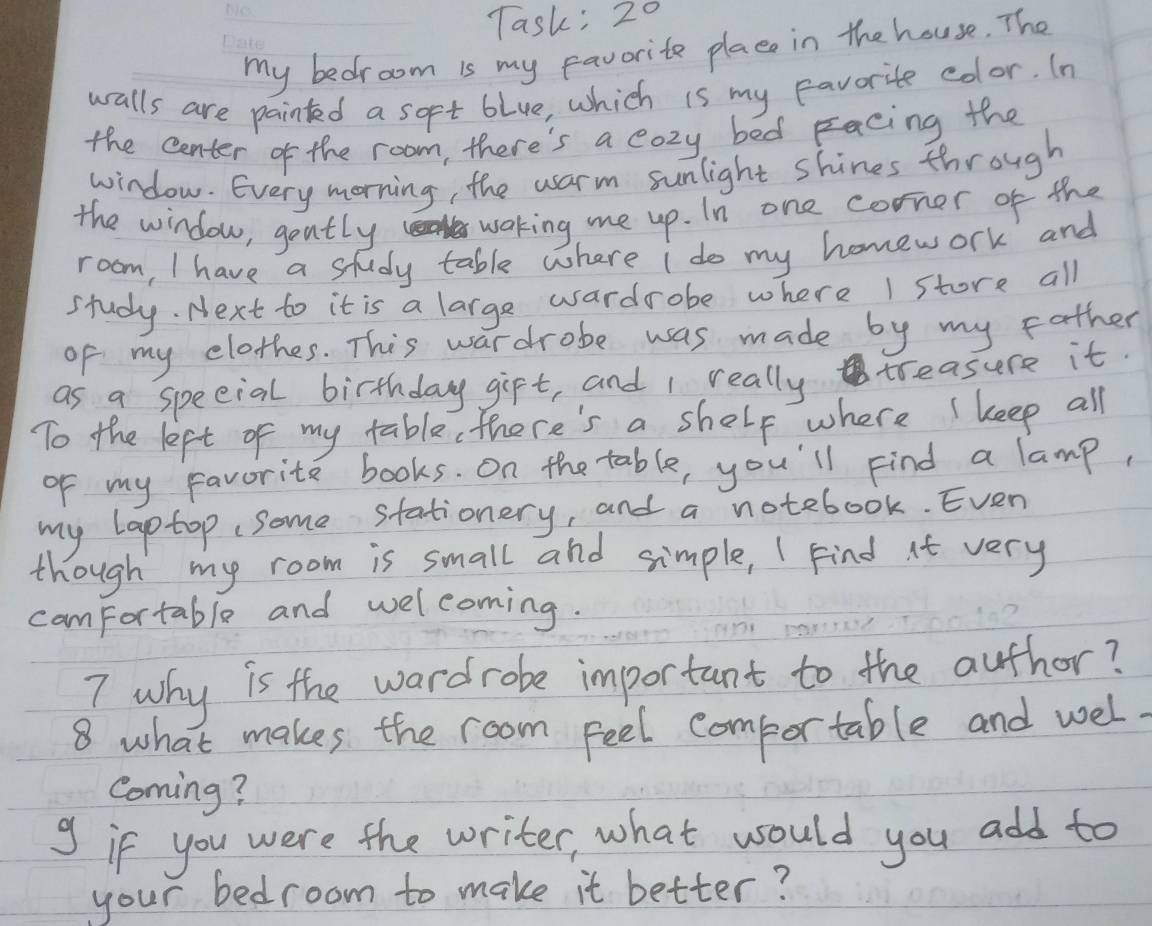 No.
Date
Task: 20
my bedroom is my favorite place in the house. The
walls are painted a soft blue, which is my favorite color. In
the center of the room, there's a cozy bed facing the
window. Every morning, the warm sunlight shines through
the window, gently waking me up. In one corner of the
room, I have a study table where I do my homework and
study. Next to it is a large wardrobe where I store all
of my clothes. This wardrobe was made by my father
as a special birthday gift, and I really treasure it.
To the left of my table, there's a shelf where I keep all
of my favorite books. On the table, you'll find a lamp,
my laptop, some stationery, and a notebook. Even
though my room is small and simple, I find it very
comfortable and welcoming.
7 why is the wardrobe important to the author?
8 what makes the room feel comfortable and wel-
coming?
9 if you were the writer, what would you add to
your bedroom to make it better?